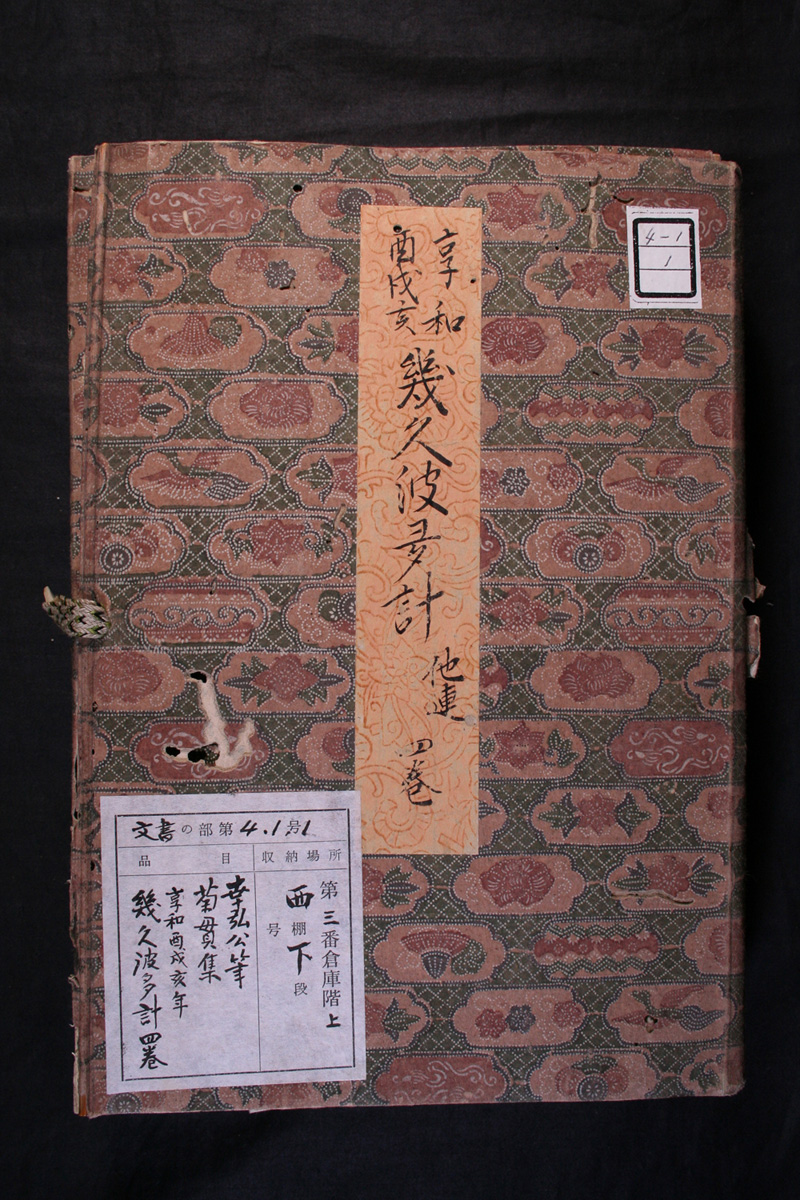 享和
酉戌亥
幾久波多計
他連
四巻
4-1
1
文書の部第4.1号1
品目
収納場所
第三番倉庫階上
西棚下段
号
幸弘公筆
菊貫集
享和酉戌亥年
幾久波多計四巻